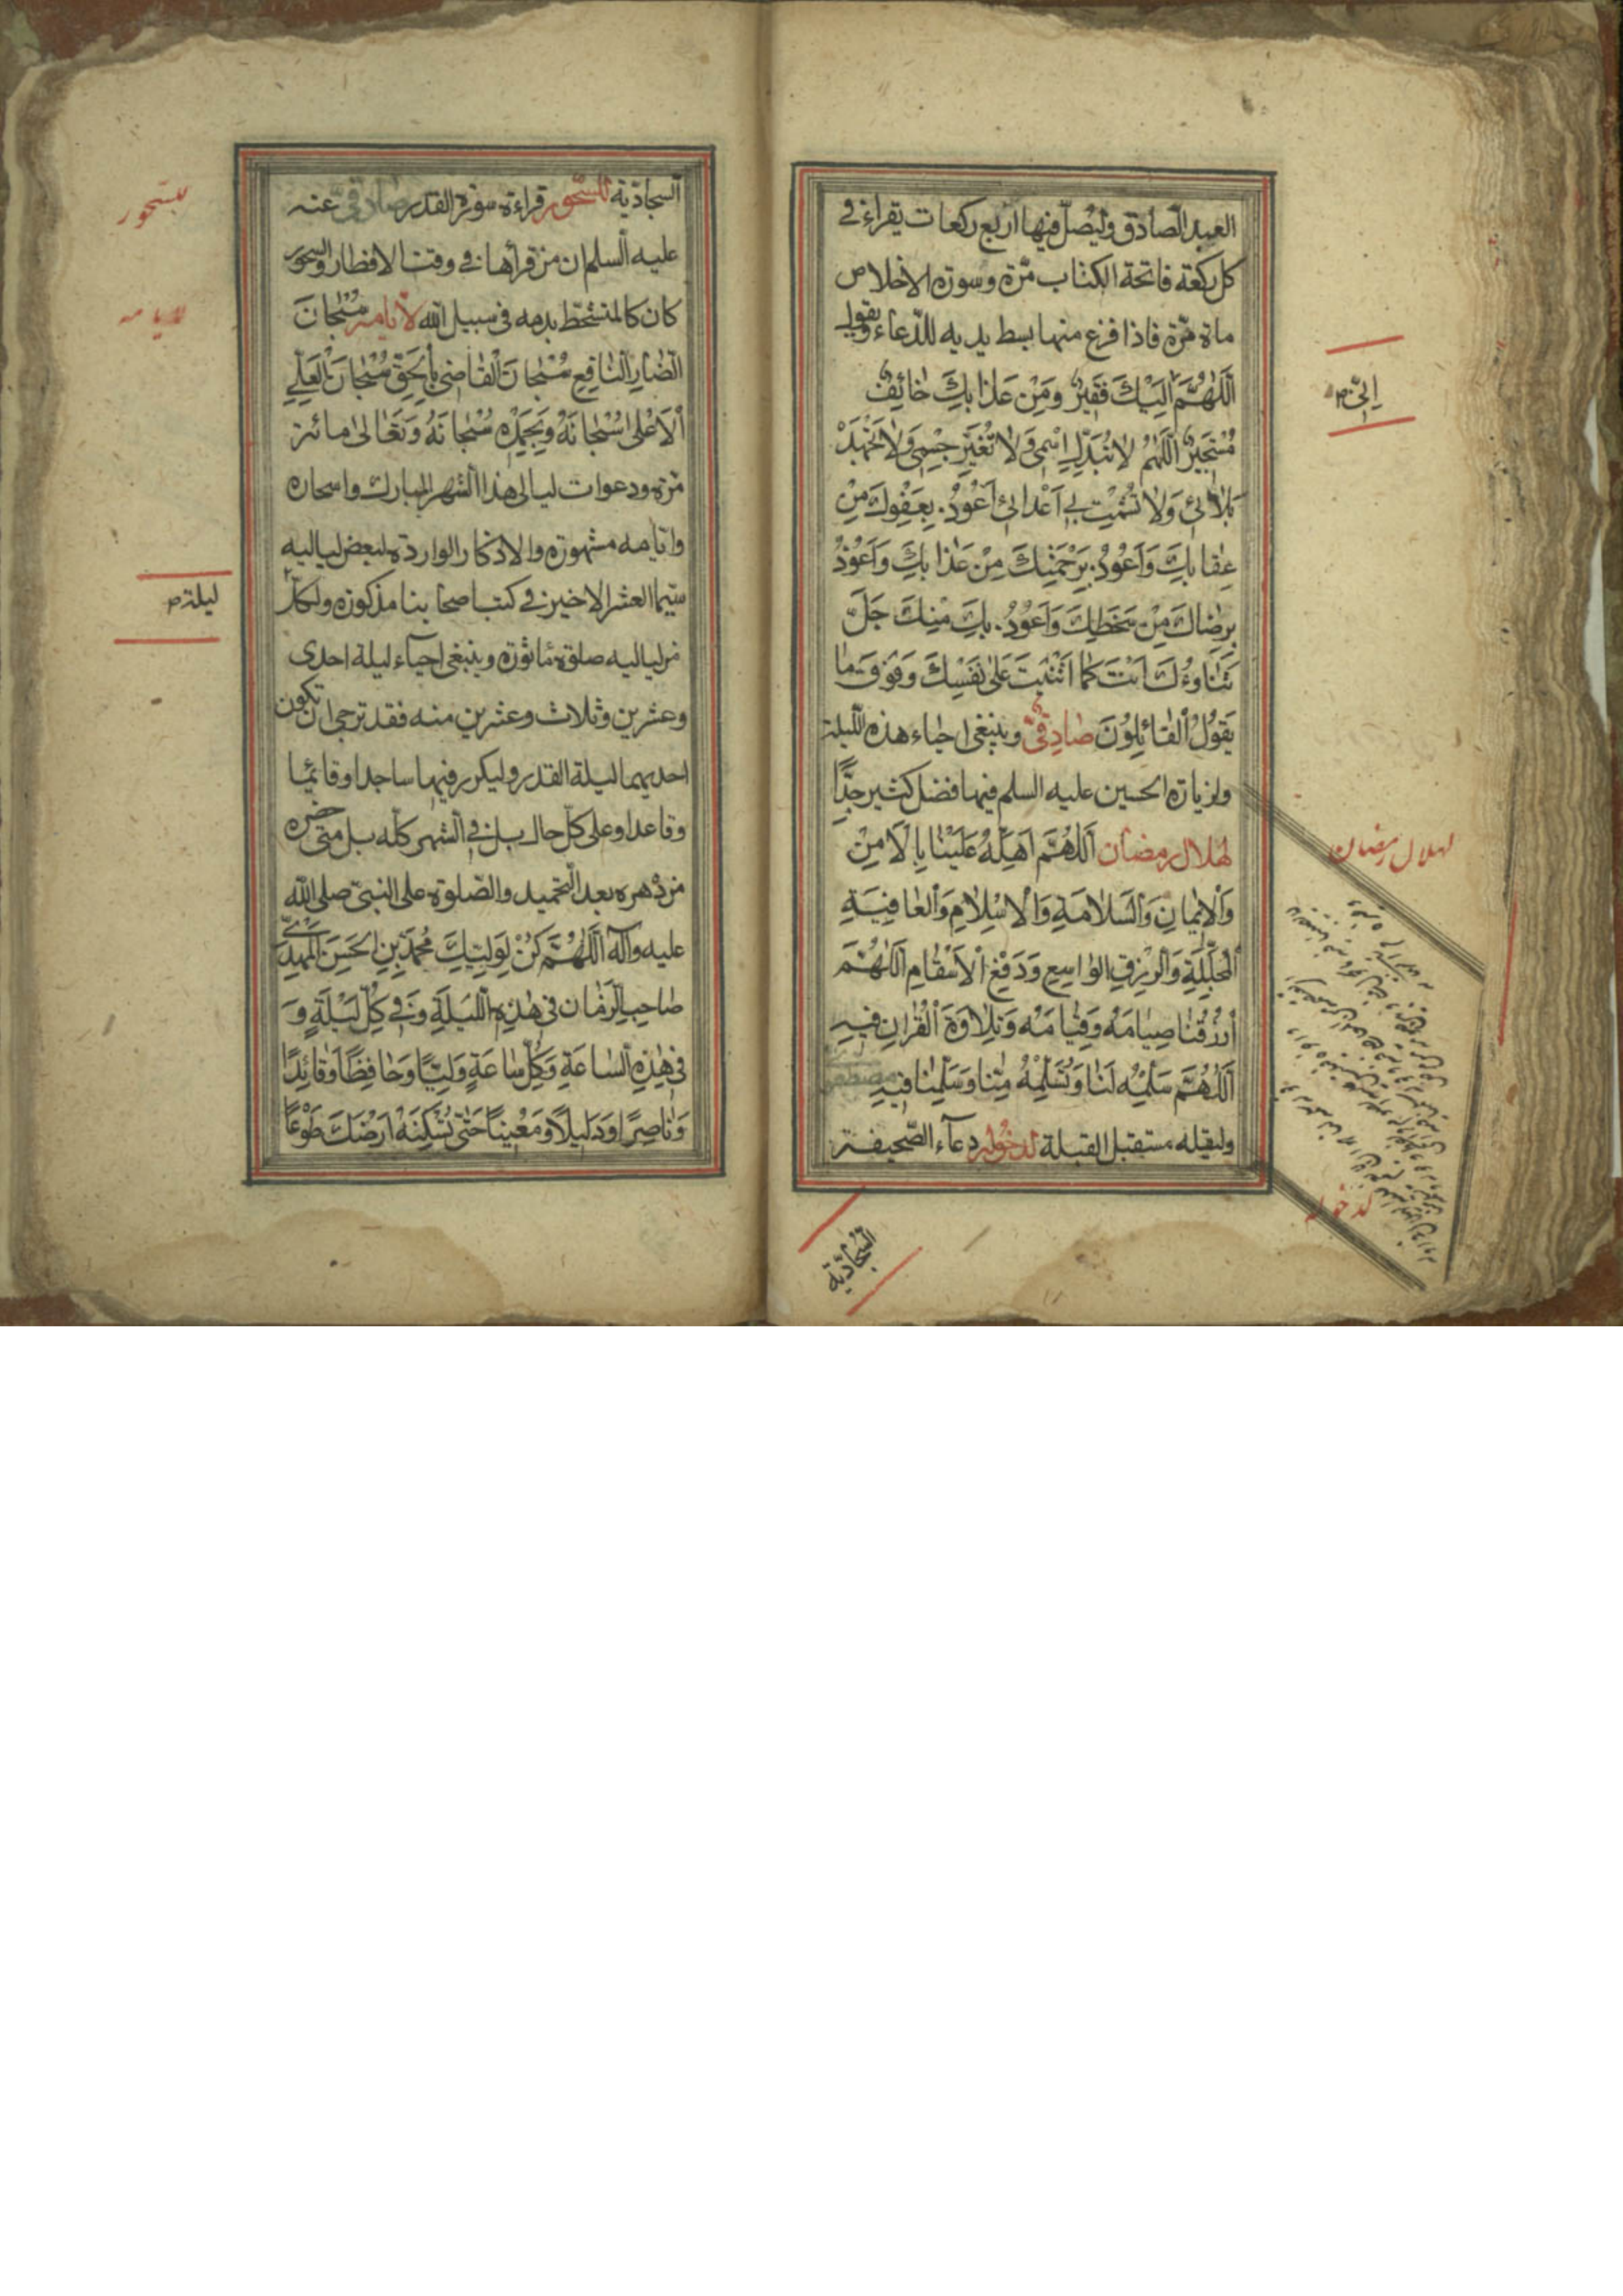 العبد الصادق وليصل فيها اربع ركعات يقراء في
كل ركعة فاتحة الكتاب مرة وسورة الاخلاص
ماة مرة فاذا فرغ منها بسط يديه للدعاء ويقول
اَللّٰهُمَّ اِلَيْكَ فَقِيرٌ وَمِنْ عَذَابِكَ خَائِفٌ
مُسْتَجِيرٌ اَللّٰهُمَّ لَا تُبَدِّلْ اِسْمِي وَلَا تُغَيِّرْ جِسْمِي وَلَا تَجْهَدْ
بَلَائِي وَلَا تُشْمِتْ بِي اَعْدَائِي اَعُوذُ بِعَفْوِكَ مِنْ
عِقَابِكَ وَاَعُوذُ بِرَحْمَتِكَ مِنْ عَذَابِكَ وَاَعُوذُ
بِرِضَاكَ مِنْ سَخَطِكَ وَاَعُوذُ بِكَ مِنْكَ جَلَّ
ثَنَاوُءُكَ اَنْتَ كَمَا اَثْنَيْتَ عَلٰى نَفْسِكَ وَفَوْقَ مَا
يَقُولُ الْقَائِلُونَ صَادِقِىّ وينبغي احياء هذه الليلة
ولزيارة الحسين عليه السلم فيها فضل كثير جدًّا
لهلال رمضان اَللّٰهُمَّ اَهِلَّهُ عَلَيْنَا بِالْاَمْنِ
وَالْاِيمَانِ وَالسَّلَامَةِ وَالْاِسْلَامِ وَالْعَافِيَةِ
الْمُجَلِّلَةِ وَالرِّزْقِ الْوَاسِعِ وَدَفْعِ الْاَسْقَامِ اَللّٰهُمَّ
ارْزُقْنَا صِيَامَهُ وَقِيَامَهُ وَتِلَاوَةَ الْقُرْاٰنِ فِيهِ
اَللّٰهُمَّ سَلِّمْهُ لَنَا وَتَسَلَّمْهُ مِنَّا وَسَلِّمْنَا فِيهِ
وليقله مستقبل القبلة لدخوله دعاء الصحيفة
السجادية
اِنِّي ص
لهلال رمضان
لدخوله
السجادية للسحور قراءة سورة القدر صادقىّ عنه
عليه السلم ان من قرأها في وقت الافطار والسحور
كان كالمتشحط بدمه في سبيل الله لأيامه سُبْحَانَ
الضَّارِّ النَّافِعِ سُبْحَانَ الْقَاضِي بِالْحَقِّ سُبْحَانَ الْعَلِيِّ
الْاَعْلٰى سُبْحَانَهُ وَبِحَمْدِهِ سُبْحَانَهُ وَتَعَالٰى مائة
مرة ودعوات ليالي هذا الشهر المبارك واسحاره
وايامه مشهورة والاذكار الواردة لبعض لياليه
سيما العشر الاخير في كتب اصحابنا مذكورة ولكل
من لياليه صلوة ماثورة وينبغي احياء ليلة احدى
وعشرين وثلاث وعشرين منه فقد ترجى ان تكون
احديهما ليلة القدر وليكرر فيها ساجدا وقائما
وقاعدا وعلى كل حال بل في الشهر كله بل متى حضره
من دهره بعد التحميد والصلوة على النبي صلى الله
عليه وآله اَللّٰهُمَّ كُنْ لِوَلِيِّكَ مُحَمَّدِ بْنِ الْحَسَنِ الْمَهْدِيِّ
صَاحِبِ الزَّمَانِ فِي هٰذِهِ اللَّيْلَةِ وَفِي كُلِّ لَيْلَةٍ وَ
فِي هٰذِهِ السَّاعَةِ وَكُلِّ سَاعَةٍ وَلِيًّا وَحَافِظًا وَقَائِدًا
وَنَاصِرًا وَدَلِيلًا وَمُعِينًا حَتّٰى تُسْكِنَهُ اَرْضَكَ طَوْعًا
للسحور
لايامه
ليلة ص